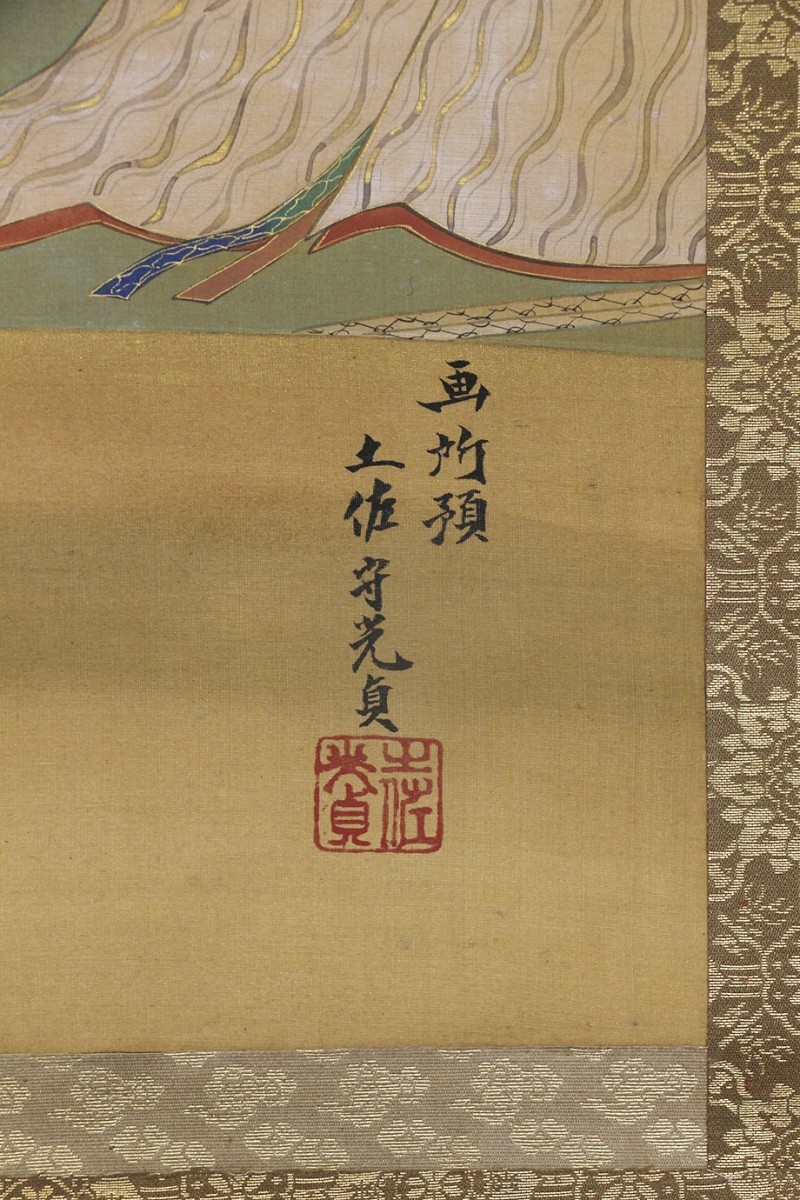 画所預
土佐守光貞
土佐
光貞